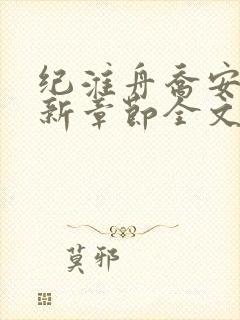 纪淮舟乔安
新章节全文
莫邪